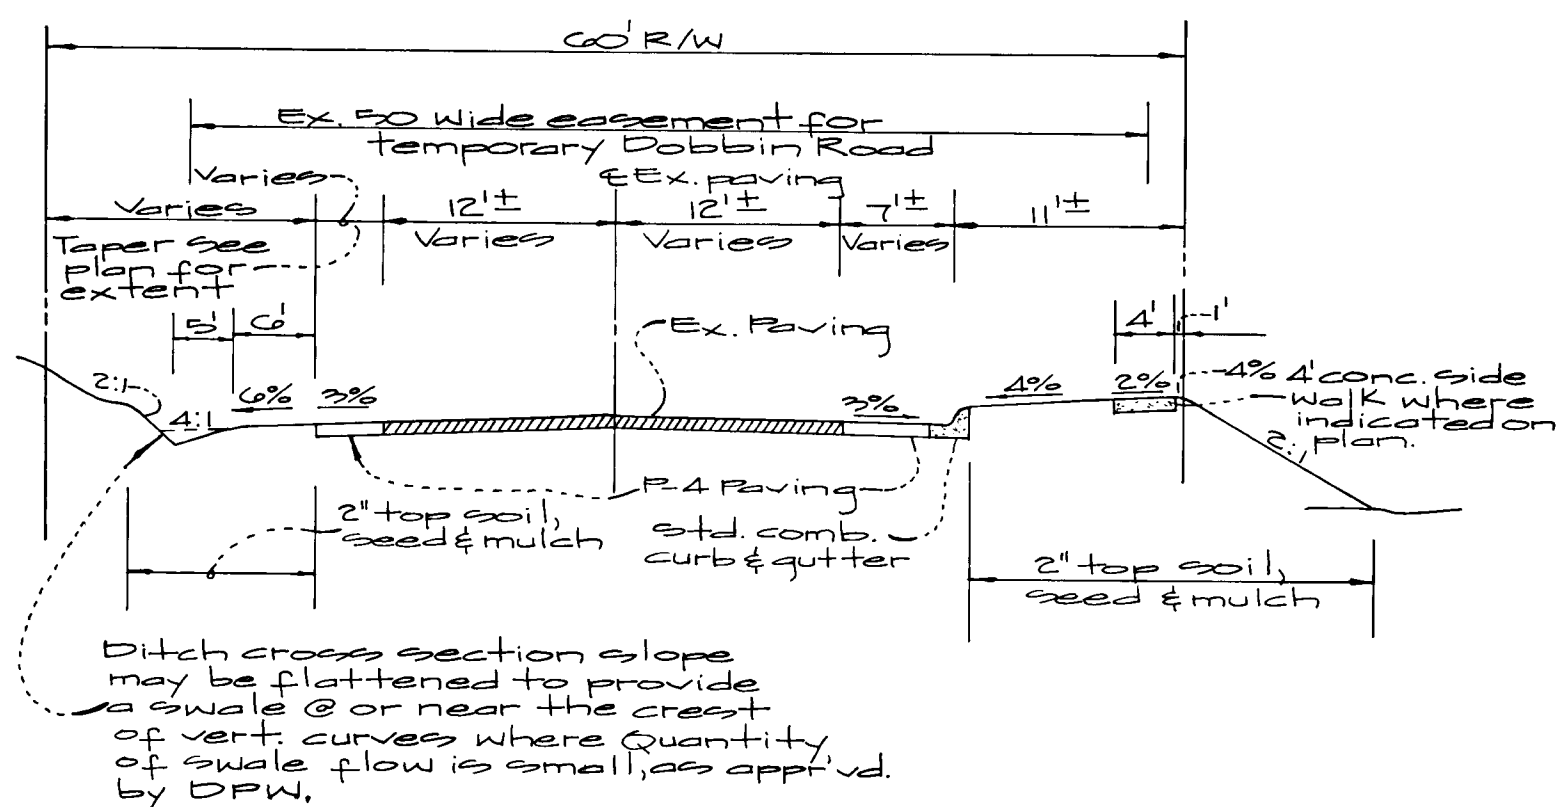 60' R/W
Ex. 50 wide easement for
temporary Dobbin Road
Varies
℄ Ex. paving
Varies
12'±
Varies
12'±
Varies
7'±
Varies
11'±
Taper see
plan for
extent
5'
6'
Ex. Paving
4'
1'
2:1
4:1
6%
3%
3%
4%
2%
4%
4' conc. side
walk where
indicated on
plan.
2:1
P-4 Paving
2" top soil,
seed & mulch
std. comb.
curb & gutter
2" top soil,
seed & mulch
Ditch cross section slope
may be flattened to provide
a swale @ or near the crest
of vert. curves where Quantity
of swale flow is small, as appr'vd.
by DPW.